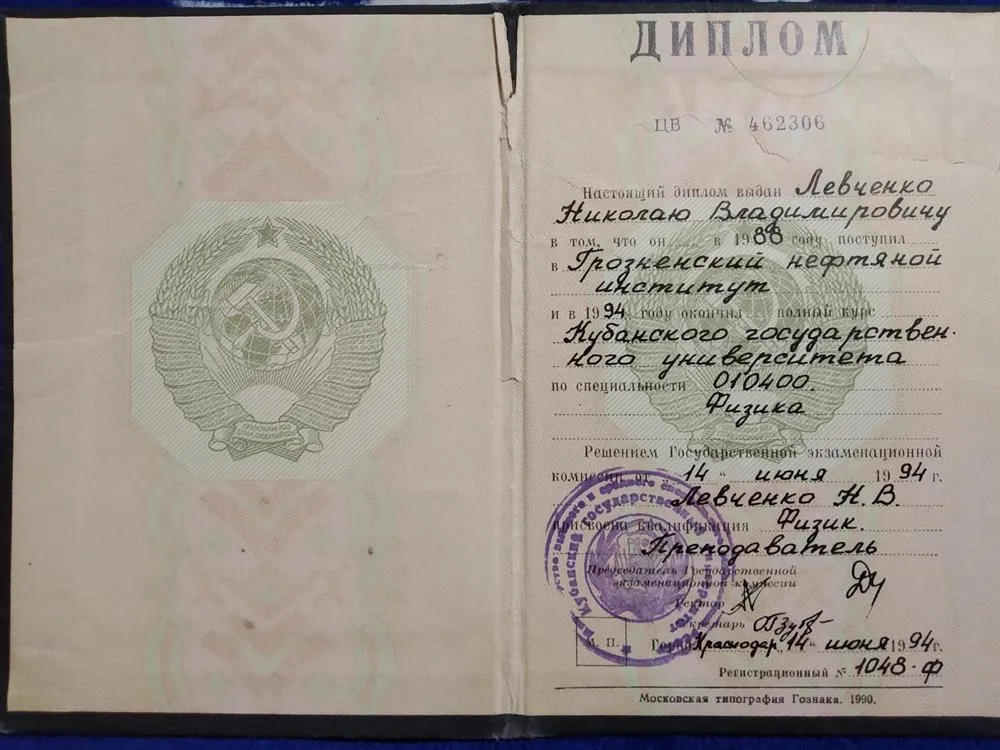 ДИПЛОМ
ЦВ № 462306
Настоящий диплом выдан Левченко
Николаю Владимировичу
в том, что он в 1988 году поступил
в Грозненский нефтяной
институт
и в 1994 году окончил полный курс
Кубанского государствен-
ного университета
по специальности 010400.
Физика
Решением Государственной экзаменационной
комиссии от „14“ июня 1994 г.
Левченко Н.В.
присвоена квалификация Физик.
Преподаватель
Председатель Государственной
экзаменационной комиссии
Ректор
Секретарь
М. П.
Город Краснодар, 14“ июня 1994г.
Регистрационный № 1048-ф
Московская типография Гознака. 1990.
Кубанский государственный университет